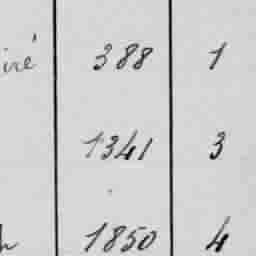 388 1
1341 3
1850 4